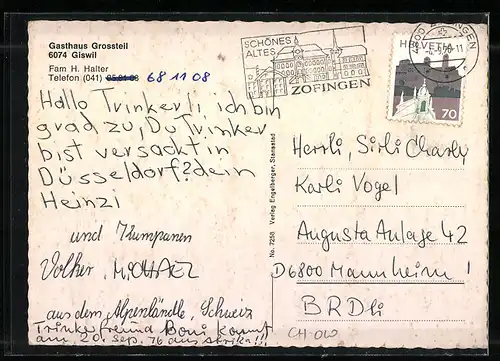 Gasthaus Grossteil
6074 Giswil
Fam H. Halter
Telefon (041) 68 11 08
Hallo Trinkerli ich bin
grad zu, Du Trinker
bist versackt in
Düsseldorf? dein
Heinzi
und Kumpanen
Volker, MICHAEL
aus dem Alpenländle, Schweiz
Trinkerfreund Boni kommt
am 20. Sep. 76 aus Afrika!!!
SCHÖNES
ALTES
ZOFINGEN
4800 ZOFINGEN
HELVETIA
70
No. 7258 Verlag Engelberger, Stansstad
Herrli, Sirli Charly
Karli Vogel
Augusta Anlage 42
D6800 Mannheim!
BRDli
CH-OW